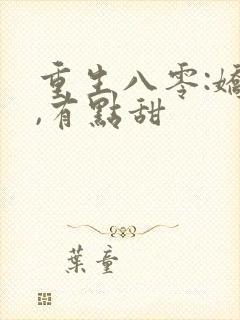 重生八零:嬌
,有點甜
葉童